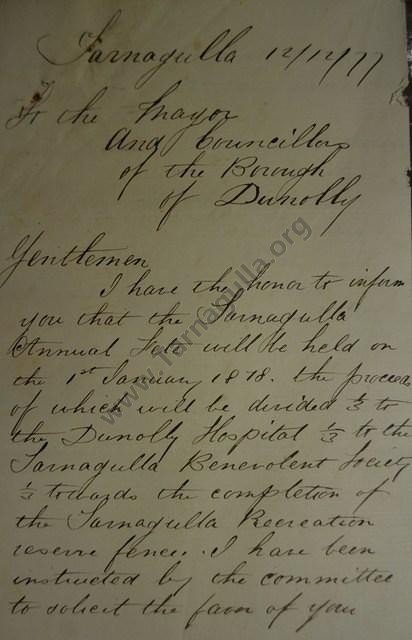 Tarnagulla 12/12/77
To the Mayor
And Councillors
of the Borough
of Dunolly
Gentlemen
I have the honor to inform
you that the Tarnagulla
Annual Fete will be held on
the 1st January 1878. the proceeds
of which will be divided 1/3 to
the Dunolly Hospital 1/3 to the
Tarnagulla Benevolent Society
1/3 towards the completion of
the Tarnagulla Recreation
reserve fence. I have been
instructed by the committee
to solicit the favor of your
www.Tarnagulla.org